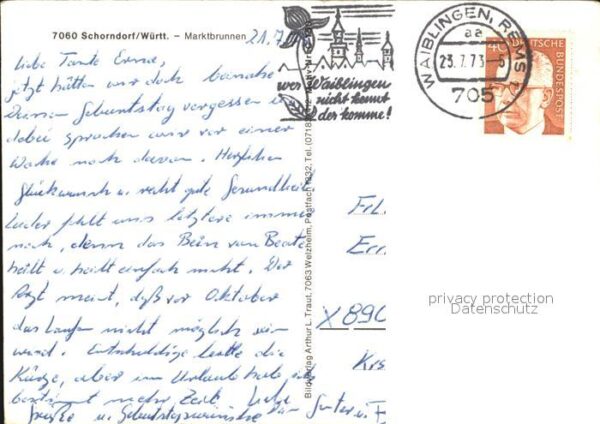 7060 Schorndorf/Württ. – Marktbrunnen
21.7.
Liebe Tante Erna,
jetzt hätten wir doch beinahe
Deinen Geburtstag vergessen
dabei sprachen wir vor einer
Woche noch davon. Herzlichen
Glückwunsch u. recht gute Gesundheit
Leider fehlt uns letztere immer
noch, denn das Bein von Beate
heilt u. heilt einfach nicht. Der
Arzt meint, daß vor Oktober
das Laufen nicht möglich sein
wird. Entschuldige bitte die
Kürze, aber im Urlaub habe ich
bestimmt mehr Zeit. Liebe
Grüße u. Geburtstagswünsche Günter u.
wer Waiblingen
nicht kennt
der komme!
WAIBLINGEN, REMS 1
aa
23.7.73
705
40
DEUTSCHE
BUNDESPOST
Bildverlag Arthur L. Traut, 7063 Welzheim, Postfach 1232, Tel. (0718
Frl.
Ern
X 890
Krs
privacy protection
Datenschutz